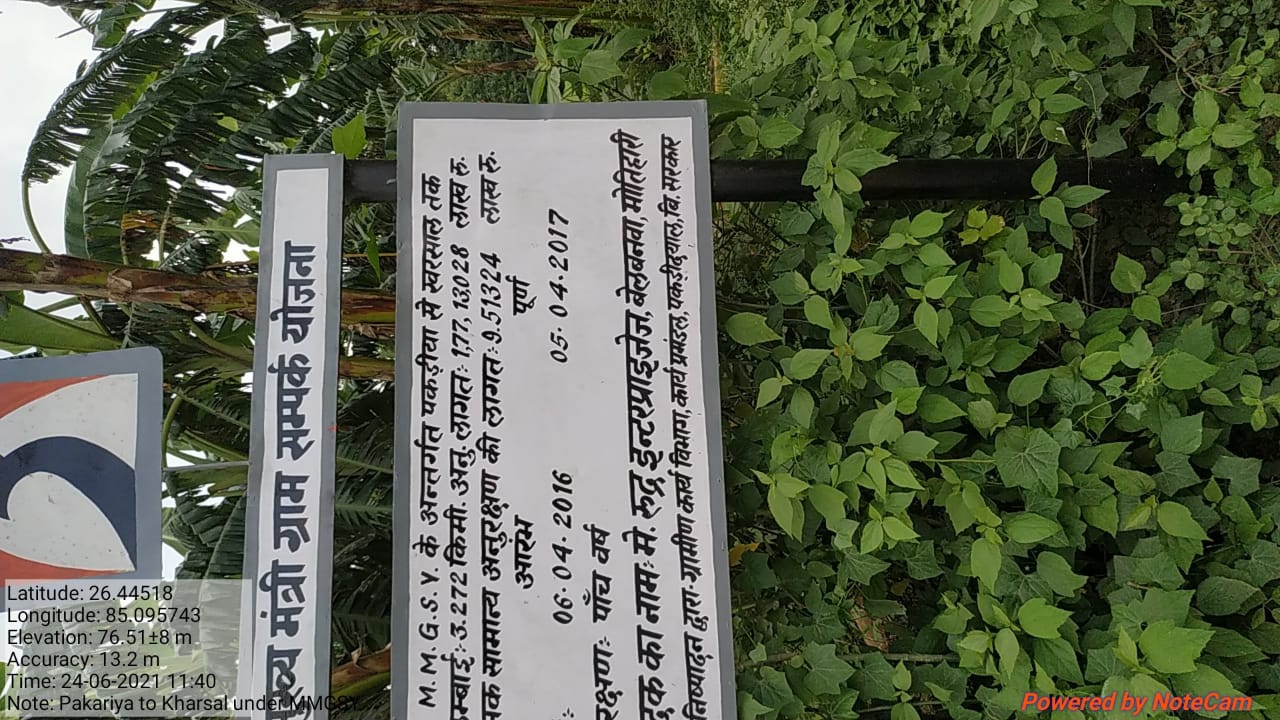 मुख्य मंत्री ग्राम सम्पर्क योजना
M.M.G.S.Y. के अन्तर्गत पकड़ीया से खरसाल तक
म्बाई:-3.272 कि.मी. अनु. लागत:-177.13028 लाख रु.
क सामान्य अनुरक्षण की लागत:-9.51324 लाख रु.
आरंभ पूर्ण
:- 06.04.2016 05.04.2017
रक्षण:- पाँच वर्ष
का नाम:- मे. रुद्र इन्टरप्राइजेज, बेलबनवा, मोतिहारी
द्वारा:- ग्रामीण कार्य विभाग, कार्य प्रमंडल, पकड़ीदयाल, बि. सरकार
Latitude: 26.44518
Longitude: 85.095743
Elevation: 76.51±8 m
Accuracy: 13.2 m
Time: 24-06-2021 11:40
Note: Pakariya to Kharsal under MMGSY
Powered by NoteCam